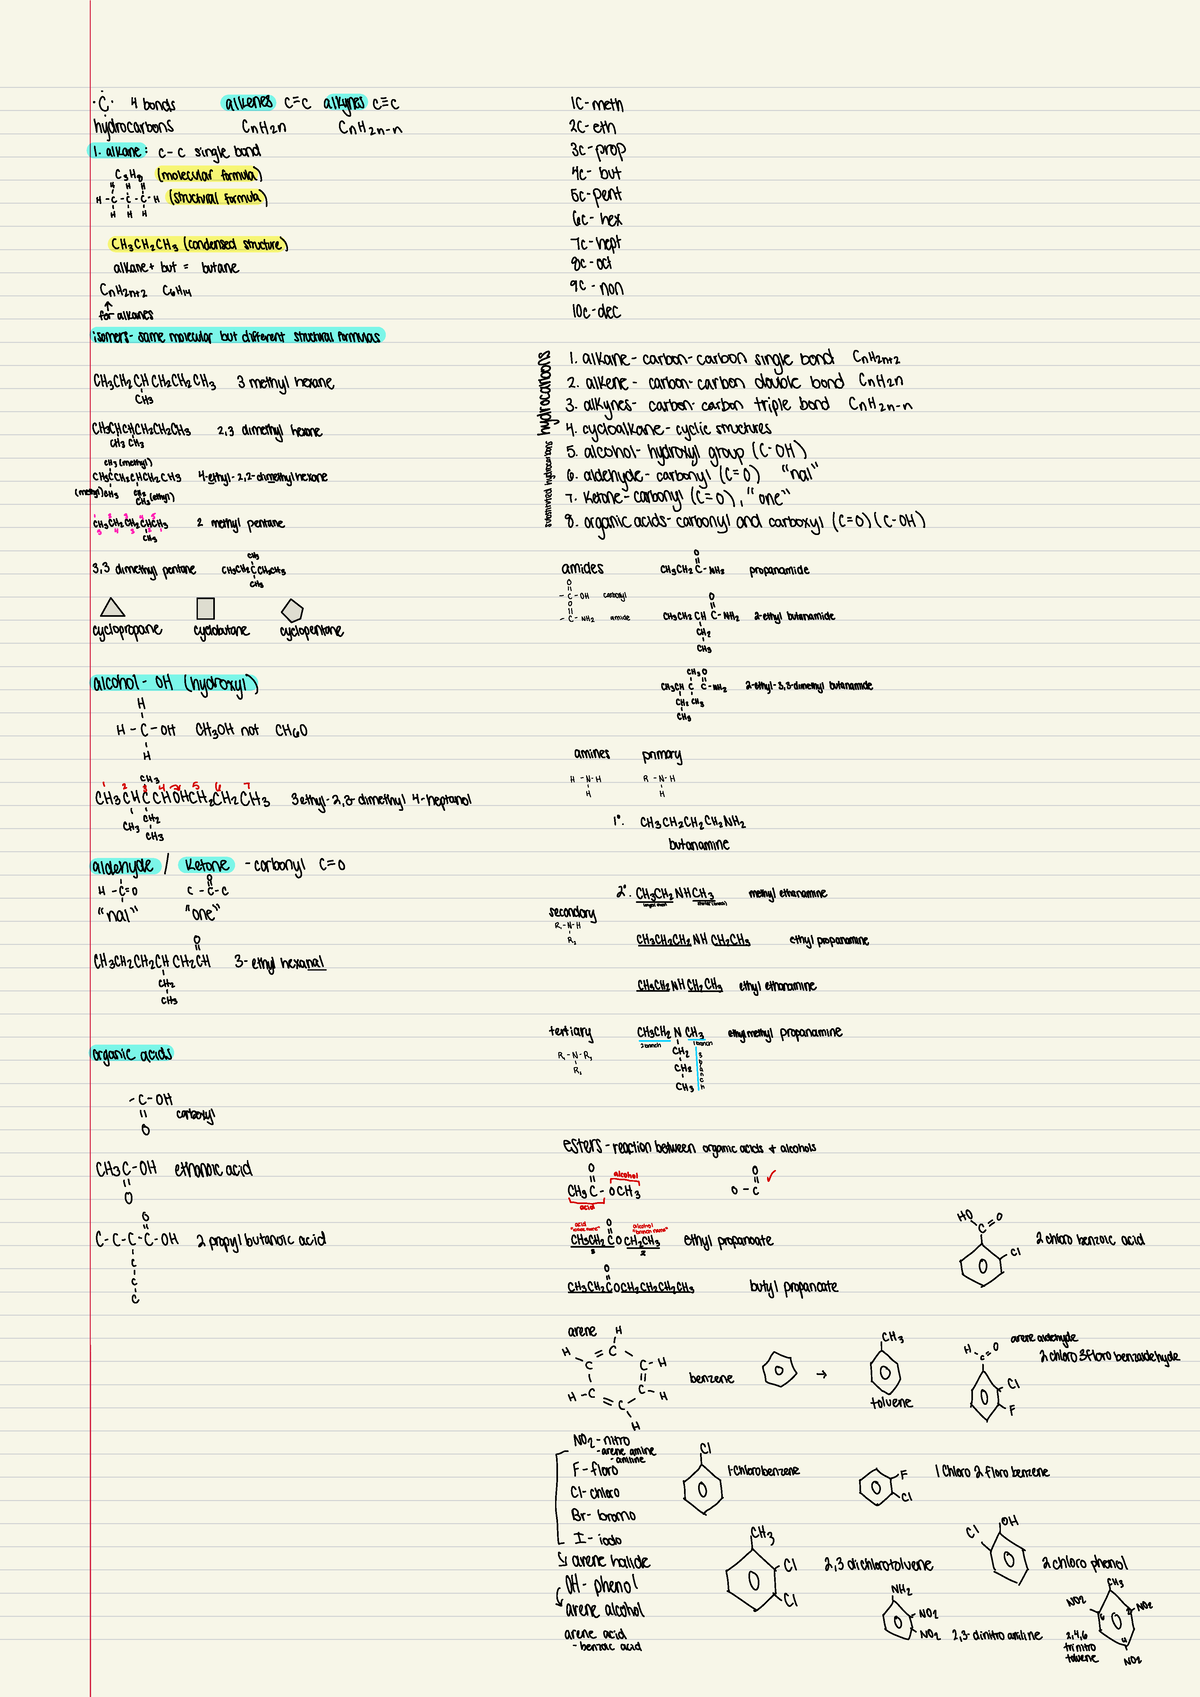 ·C· 4 bonds alkenes C=C alkynes C≡C
hydrocarbons CnH2n CnH2n-n
1. alkane: C-C single bond
C3H8 (molecular formula)
H H H
H-C-C-C-H (structural formula)
H H H
CH3CH2CH3 (condensed structure)
alkane + but = butane
CnH2n+2 C6H14
↑
for alkanes
isomers- same molecular but different structural formulas
CH3CH2CHCH2CH2CH3 3 methyl hexane
CH3
CH3CHCHCH2CH2CH3 2,3 dimethyl hexane
CH3 CH3
CH3 (methyl)
CH3CCH2CHCH2CH3 4-ethyl-2,2-dimethylhexane
(methyl)CH3 CH2
CH3 (ethyl)
CH3CH2CH2CHCH3 2 methyl pentane
5 4 3 2 1
CH3
3,3 dimethyl pentane CH3CH2CCH2CH3
CH3
CH3
cyclopropane cyclobutane cyclopentane
alcohol- OH (hydroxyl)
H
H-C-OH CH3OH not CH6O
H
CH3
1 2 3 4 5 6 7
CH3CHCCHOHCH2CH2CH3 3ethyl-2,3-dimethyl 4-heptanol
CH3 CH2
CH3
aldehyde / ketone - carbonyl C=O
H-C=O C-C-C
O
"nal" "one"
O
CH3CH2CH2CHCH2CH 3-ethyl hexanal
CH2
CH3
organic acids
-C-OH
carboxyl
O
CH3C-OH ethanoic acid
O
O
C-C-C-C-OH 2 propyl butanoic acid
C
C
C
1C-meth
2C-eth
3C-prop
4C- but
5C-pent
6C- hex
7C-hept
8C-oct
9C - non
10C-dec
hydrocarbons
substituted hydrocarbons
1. alkane- carbon-carbon single bond CnH2n+2
2. alkene - carbon-carbon double bond CnH2n
3. alkynes- carbon-carbon triple bond CnH2n-n
4. cycloalkane- cyclic structures
5. alcohol- hydroxyl group (C-OH)
6. aldehyde- carbonyl (C=O) "nal"
7. Ketone- carbonyl (C=O), "one"
8. organic acids- carbonyl and carboxyl (C=O)(C-OH)
O
amides CH3CH2C-NH2 propanamide
O
-C-OH carboxyl
O
-C-NH2 amide
O
CH3CH2CH C-NH2 2-ethyl butanamide
CH2
CH3
CH3 O
CH3CH C C-NH2 2-ethyl-3,3-dimethyl butanamide
CH2 CH3
CH3
amines primary
H-N-H R-N-H
H H
1°. CH3CH2CH2CH2NH2
butanamine
2°. CH3CH2NHCH3 methyl ethanamine
secondary
R-N-H
R1
CH3CH2CH2NH CH2CH3 ethyl propanamine
CH3CH2NH CH2CH3 ethyl ethanamine
tertiary CH3CH2 N CH3 ethylmethyl propanamine
2 branch 1 branch
R-N-R1
R1
CH2
CH2
CH3
esters- reaction between organic acids + alcohols
O alcohol O ✓
CH3C-OCH3 O-C
acid
acid alcohol
O "branch name"
CH3CH2COCH2CH3 ethyl propanoate
3 2
O
CH3CH2COCH2CH2CH2CH3 butyl propanoate
HO O
C
Cl 2 chloro benzoic acid
arene H
H C C-H
C C
H-C C-H
C
H
benzene → CH3
toluene
arene aldehyde
H-C=O 2 chloro 3floro benzaldehyde
Cl
F
NO2-nitro
-arene amine
-aniline
F-floro
Cl-chloro
Br-bromo
I-iodo
↳ arene halide
OH- phenol
arene alcohol
arene acid
- benzoic acid
Cl
1-chlorobenzene
F
Cl 1 chloro 2 floro benzene
CH3
Cl 2,3 dichlorotoluene
Cl
Cl OH
2 chloro phenol
NH2
NO2
NO2 2,3-dinitro aniline
CH3
NO2 6 2 NO2
4
NO2
2,4,6
trinitro
toluene